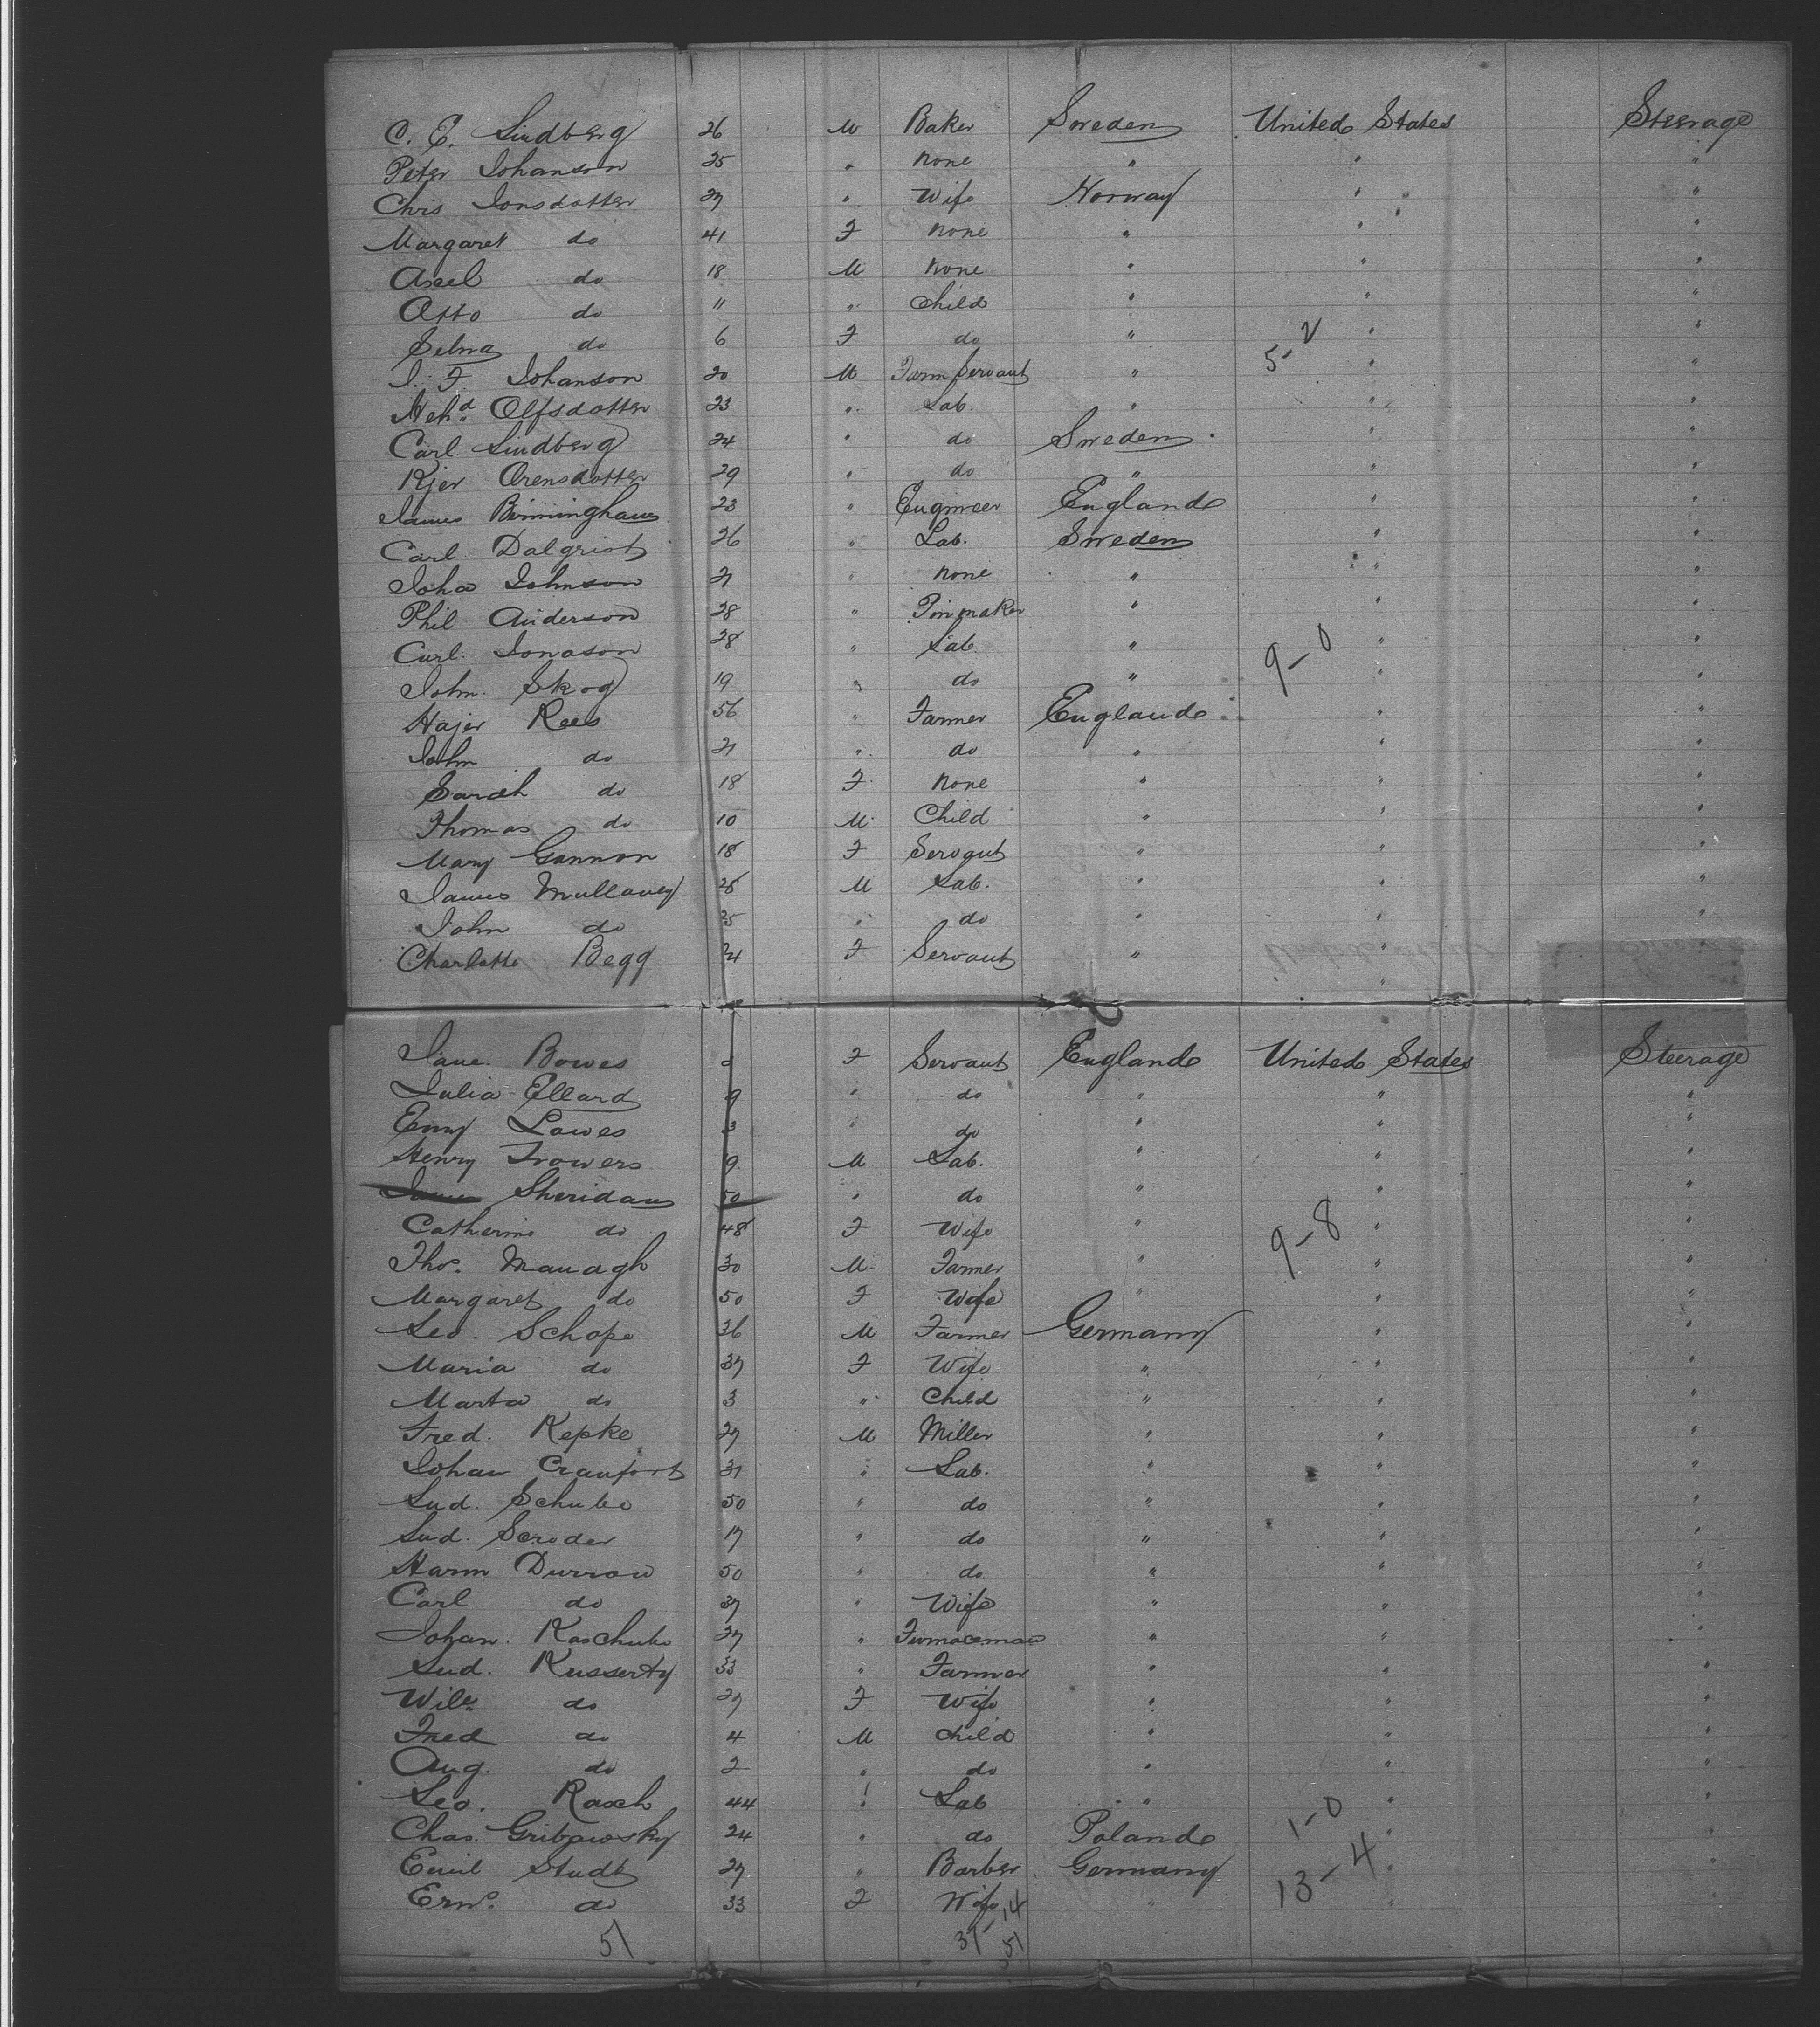 C. E. Lindberg 26 M Baker Sweden United States Steerage
Peter Johanson 25 " None " " "
Chris Jonsdotter 27 " Wife Norway " "
Margaret do 41 F None " " "
Axel do 18 M None " " "
Otto do 11 " Child " " "
Selma do 6 F do " " "
5-2
J. F. Johanson 20 M Farm Servant " " "
Olfsdotter 23 " Lab. " " "
Carl Lindberg 24 " do Sweden " "
Kjer Orensdotter 29 " do " " "
James Birmingham 23 " Engineer England " "
Carl Dalqrist 26 " Lab. Sweden " "
Joha Johnson 21 " None " " "
Phil Anderson 28 " " " "
Carl Jonason 28 " Lab. " " "
9-0
John Skog 19 " do " " "
Hajer Rees 56 " Farmer England " "
John do 21 " do " " "
Sarah do 18 F None " " "
Thomas do 10 M Child " " "
Mary Gannon 18 F Servant " " "
James Mullaney 28 M Lab. " " "
John do 25 " do " " "
Charlotte Begg 24 F Servant " " "
Jane Bowes F Servant England United States Steerage
Julia Ellard 9 " do " " "
Emy Lowes 3 " do " " "
Henry Trowers 9 M Lab. " " "
James Sheridan 50 " do " " "
Catherine do 48 F Wife " " "
9-8
Thos. Managh 30 M Farmer " " "
Margaret do 50 F Wife " " "
Leo. Schope 36 M Farmer Germany " "
Maria do 37 F Wife " " "
Marta do 3 " Child " " "
Fred. Kepke 27 M Miller " " "
Johan Cranfort 31 " Lab. " " "
Lud. Schube 50 " do " " "
Lud. Scroder 17 " do " " "
Harm Durrow 50 " do " " "
Carl do 37 " Wife " " "
Johan. Kaschube 27 " Furnaceman " " "
Lud. Russerty 33 " Farmer " " "
Wilr. do 27 F Wife " " "
Fred do 4 M Child " " "
Aug. do 2 " do " " "
Leo. Rasch 44 " Lab " " "
1-0
Chas. Gribowsky 24 " do Poland " "
Emil Studt 27 " Barber Germany " "
13-4
Erns. do 33 F Wife " " "
14
51 37 51